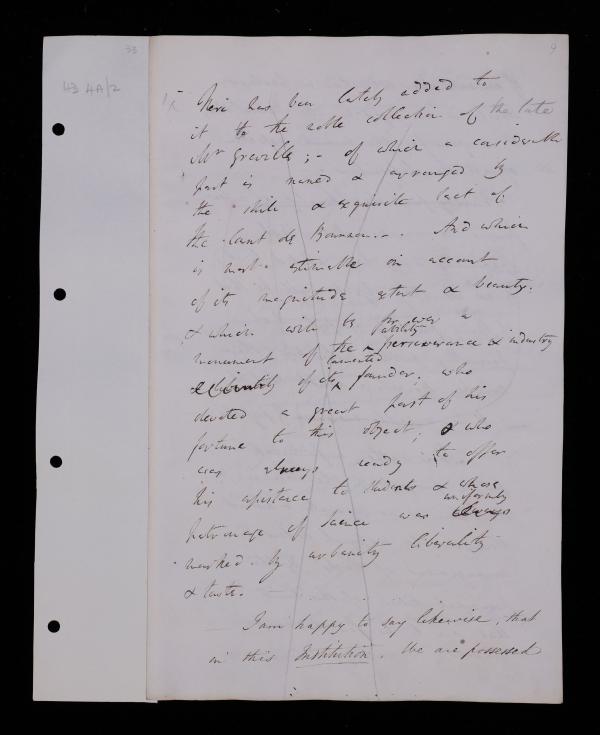 33
9
43 4A/2
There has been lately added to
it to the noble collection of the late
Mr Greville; - of which a considerable
part is named & arranged by
the skill & exquisite tact of
the Count de Bournon. - . And which
is most estimable on account
of its magnitude extent & beauty.
& which will be for ever a
ability
monument of the ^ perseverance & industry
lamented
& liberality of its ^ founder; who
devoted a great part of his
fortune to this object; & who
was always ready to offer
his assistance to students & whose
uniformly
patronage of Science was always
marked by urbanity liberality
& taste.
I am happy to say likewise, that
in this Institution. We are possessed